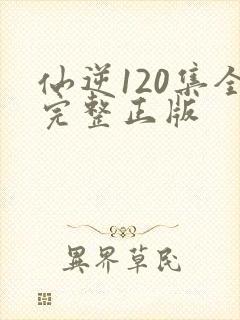 仙逆120集全
完整正版
異界草民